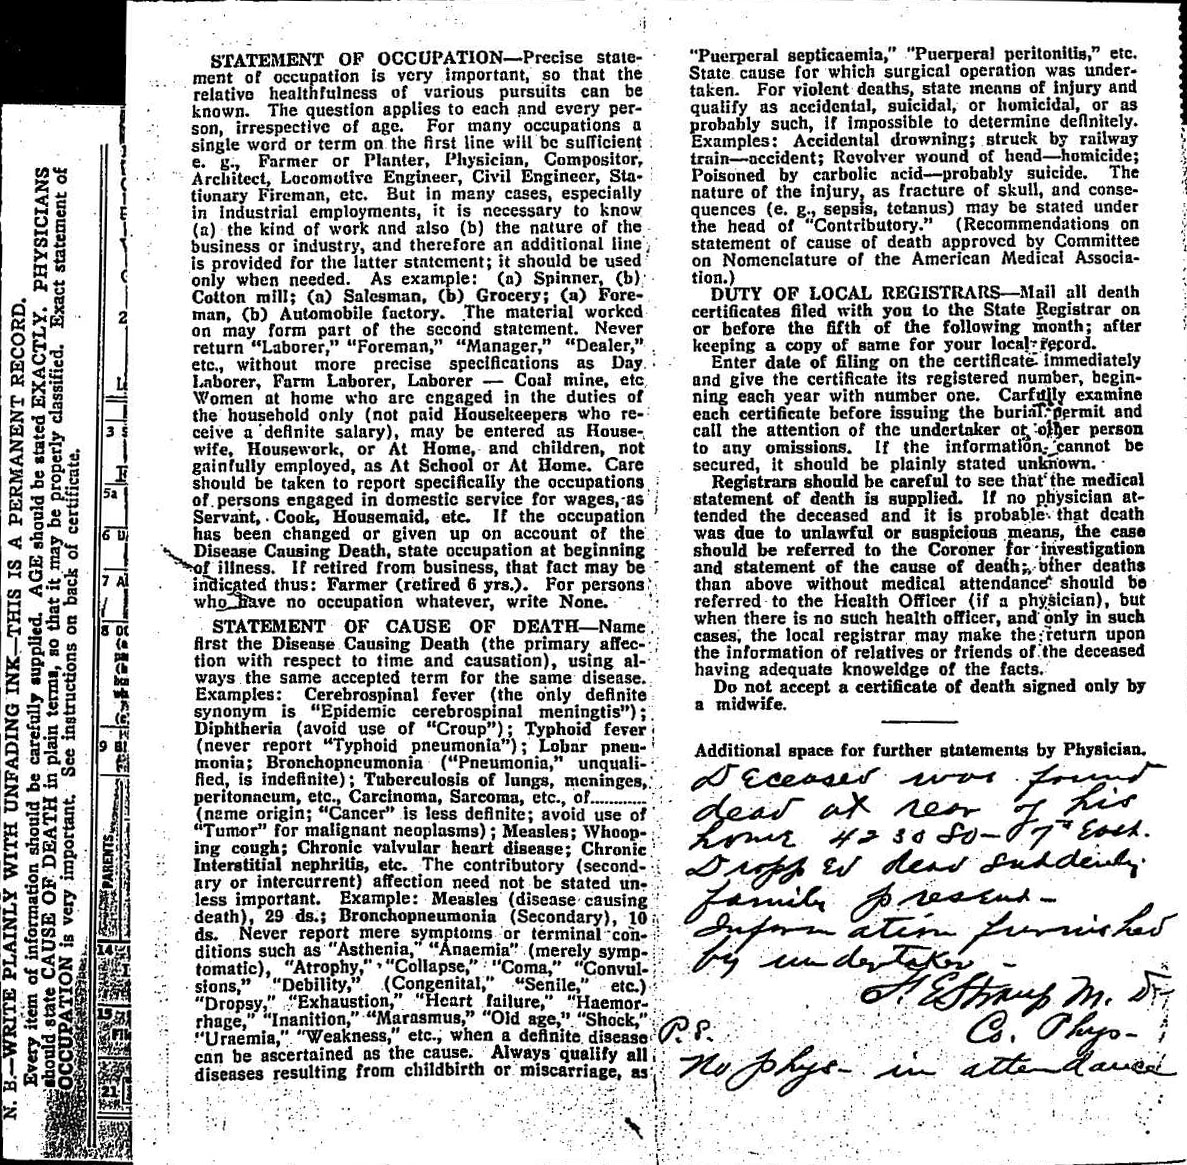 N. B.—WRITE PLAINLY WITH UNFADING INK—THIS IS A PERMANENT RECORD.
Every item of information should be carefully supplied. AGE should be stated EXACTLY. PHYSICIANS
should state CAUSE OF DEATH in plain terms, so that it may be properly classified. Exact statement of
OCCUPATION is very important. See instructions on back of certificate.
2
3
5a
6
7 A
8
9
PARENTS
14
15
21
STATEMENT OF OCCUPATION—Precise state-
ment of occupation is very important, so that the
relative healthfulness of various pursuits can be
known. The question applies to each and every per-
son, irrespective of age. For many occupations a
single word or term on the first line will be sufficient
e. g., Farmer or Planter, Physician, Compositor,
Architect, Locomotive Engineer, Civil Engineer, Sta-
tionary Fireman, etc. But in many cases, especially
in industrial employments, it is necessary to know
(a) the kind of work and also (b) the nature of the
business or industry, and therefore an additional line
is provided for the latter statement; it should be used
only when needed. As example: (a) Spinner, (b)
Cotton mill; (a) Salesman, (b) Grocery; (a) Fore-
man, (b) Automobile factory. The material worked
on may form part of the second statement. Never
return "Laborer," "Foreman," "Manager," "Dealer,"
etc., without more precise specifications as Day
Laborer, Farm Laborer, Laborer — Coal mine, etc
Women at home who are engaged in the duties of
the household only (not paid Housekeepers who re-
ceive a definite salary), may be entered as House-
wife, Housework, or At Home, and children, not
gainfully employed, as At School or At Home. Care
should be taken to report specifically the occupations
of persons engaged in domestic service for wages, as
Servant, Cook, Housemaid, etc. If the occupation
has been changed or given up on account of the
Disease Causing Death, state occupation at beginning
of illness. If retired from business, that fact may be
indicated thus: Farmer (retired 6 yrs.). For persons
who have no occupation whatever, write None.
STATEMENT OF CAUSE OF DEATH—Name
first the Disease Causing Death (the primary affec-
tion with respect to time and causation), using al-
ways the same accepted term for the same disease.
Examples: Cerebrospinal fever (the only definite
synonym is "Epidemic cerebrospinal meningtis");
Diphtheria (avoid use of "Croup"); Typhoid fever
(never report "Typhoid pneumonia"); Lobar pneu-
monia; Bronchopneumonia ("Pneumonia," unquali-
fied, is indefinite); Tuberculosis of lungs, meninges,
peritonaeum, etc., Carcinoma, Sarcoma, etc., of............
(name origin; "Cancer" is less definite; avoid use of
"Tumor" for malignant neoplasms); Measles; Whoop-
ing cough; Chronic valvular heart disease; Chronic
Interstitial nephritis, etc. The contributory (second-
ary or intercurrent) affection need not be stated un-
less important. Example: Measles (disease causing
death), 29 ds.; Bronchopneumonia (Secondary), 10
ds. Never report mere symptoms or terminal con-
ditions such as "Asthenia," "Anaemia" (merely symp-
tomatic), "Atrophy," "Collapse," "Coma," "Convul-
sions," "Debility," (Congenital," "Senile," etc.)
"Dropsy," "Exhaustion," "Heart failure," "Haemor-
rhage," "Inanition," "Marasmus," "Old age," "Shock,"
"Uraemia," "Weakness," etc., when a definite disease
can be ascertained as the cause. Always qualify all
diseases resulting from childbirth or miscarriage, as
"Puerperal septicaemia," "Puerperal peritonitis," etc.
State cause for which surgical operation was under-
taken. For violent deaths, state means of injury and
qualify as accidental, suicidal, or homicidal, or as
probably such, if impossible to determine definitely.
Examples: Accidental drowning; struck by railway
train—accident; Revolver wound of head—homicide;
Poisoned by carbolic acid—probably suicide. The
nature of the injury, as fracture of skull, and conse-
quences (e. g., sepsis, tetanus) may be stated under
the head of "Contributory." (Recommendations on
statement of cause of death approved by Committee
on Nomenclature of the American Medical Associa-
tion.)
DUTY OF LOCAL REGISTRARS—Mail all death
certificates filed with you to the State Registrar on
or before the fifth of the following month; after
keeping a copy of same for your local record.
Enter date of filing on the certificate immediately
and give the certificate its registered number, begin-
ning each year with number one. Carfully examine
each certificate before issuing the burial permit and
call the attention of the undertaker or other person
to any omissions. If the information cannot be
secured, it should be plainly stated unknown.
Registrars should be careful to see that the medical
statement of death is supplied. If no physician at-
tended the deceased and it is probable that death
was due to unlawful or suspicious means, the case
should be referred to the Coroner for investigation
and statement of the cause of death; other deaths
than above without medical attendance should be
referred to the Health Officer (if a physician), but
when there is no such health officer, and only in such
cases, the local registrar may make the return upon
the information of relatives or friends of the deceased
having adequate knoweldge of the facts.
Do not accept a certificate of death signed only by
a midwife.
Additional space for further statements by Physician.
Deceased was found
dead at rear of his
home 4230 So - 7th East.
Dropped dead suddenly
family present -
Information furnished
by undertaker -
M. D.
Co. Phys -
P.S.
No phys - in attendance